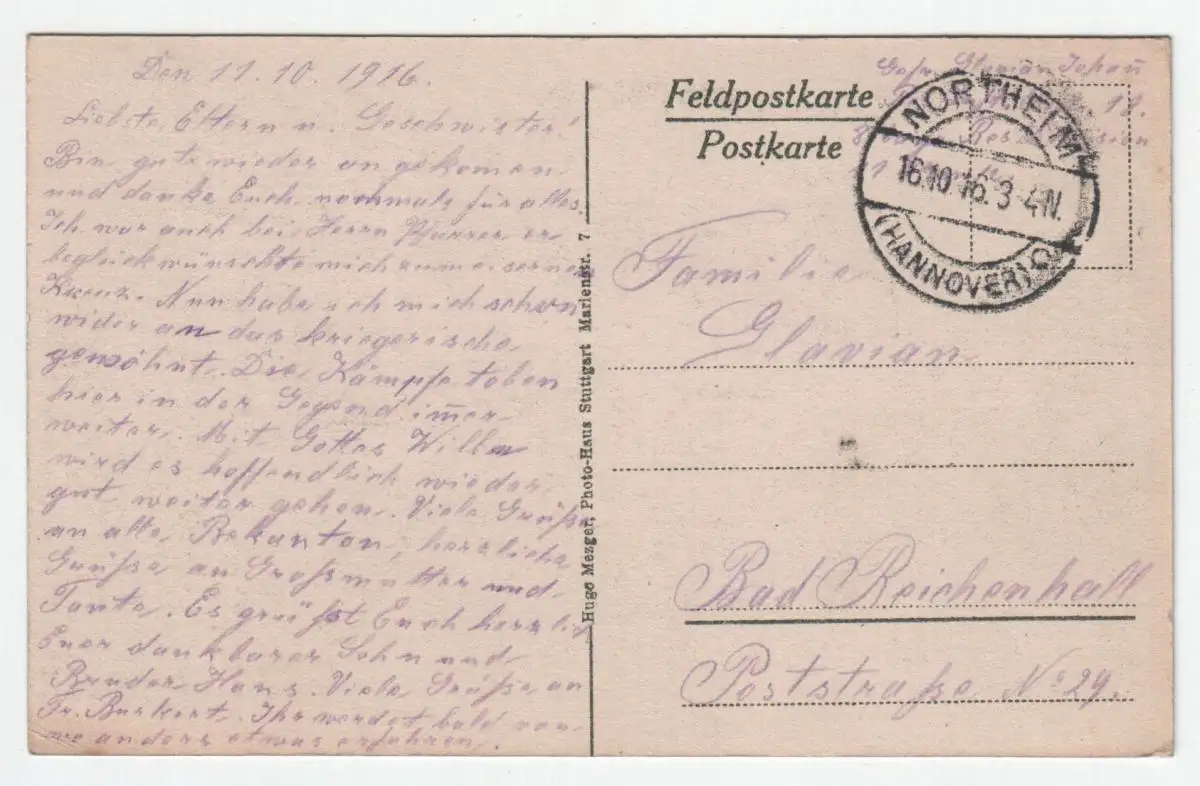 Den 11.10.1916.
Liebste Eltern u. Geschwister!
Bin gut wieder angekomen
und danke Euch nochmals für alles.
Ich war auch bei Herrn Pfarrer er
beglückwünschte mich zum eisernen
Kreuz. Nun habe ich mich schon
wider an das kriegerische
gewöhnt. Die Kämpfe toben
hier in der Gegend im̄er
weiter. Mit Gottes Willen
wird es hoffendlich wieder
gut weiter gehen. Viele Grüße
an alle Bekanten, herzliche
Grüße an Großmutter und
Tante. Es grüßt Euch herzlich
Euer dankbarer Sohn und
Bruder Hans. Viele Grüße an
Fr. Burkert. Ihr werdet bald von
wo anders etwas erfahren.
Hugo Mezger, Photo-Haus Stuttgart Marienstr. 7
Feldpostkarte
Postkarte
Gefr. Glavian Johan̄
12.
Res.
11
NORTHEIM
16.10.16. 3-4N.
(HANNOVER)
Familie
Glavian
Bad Reichenhall
Poststraße No 29.